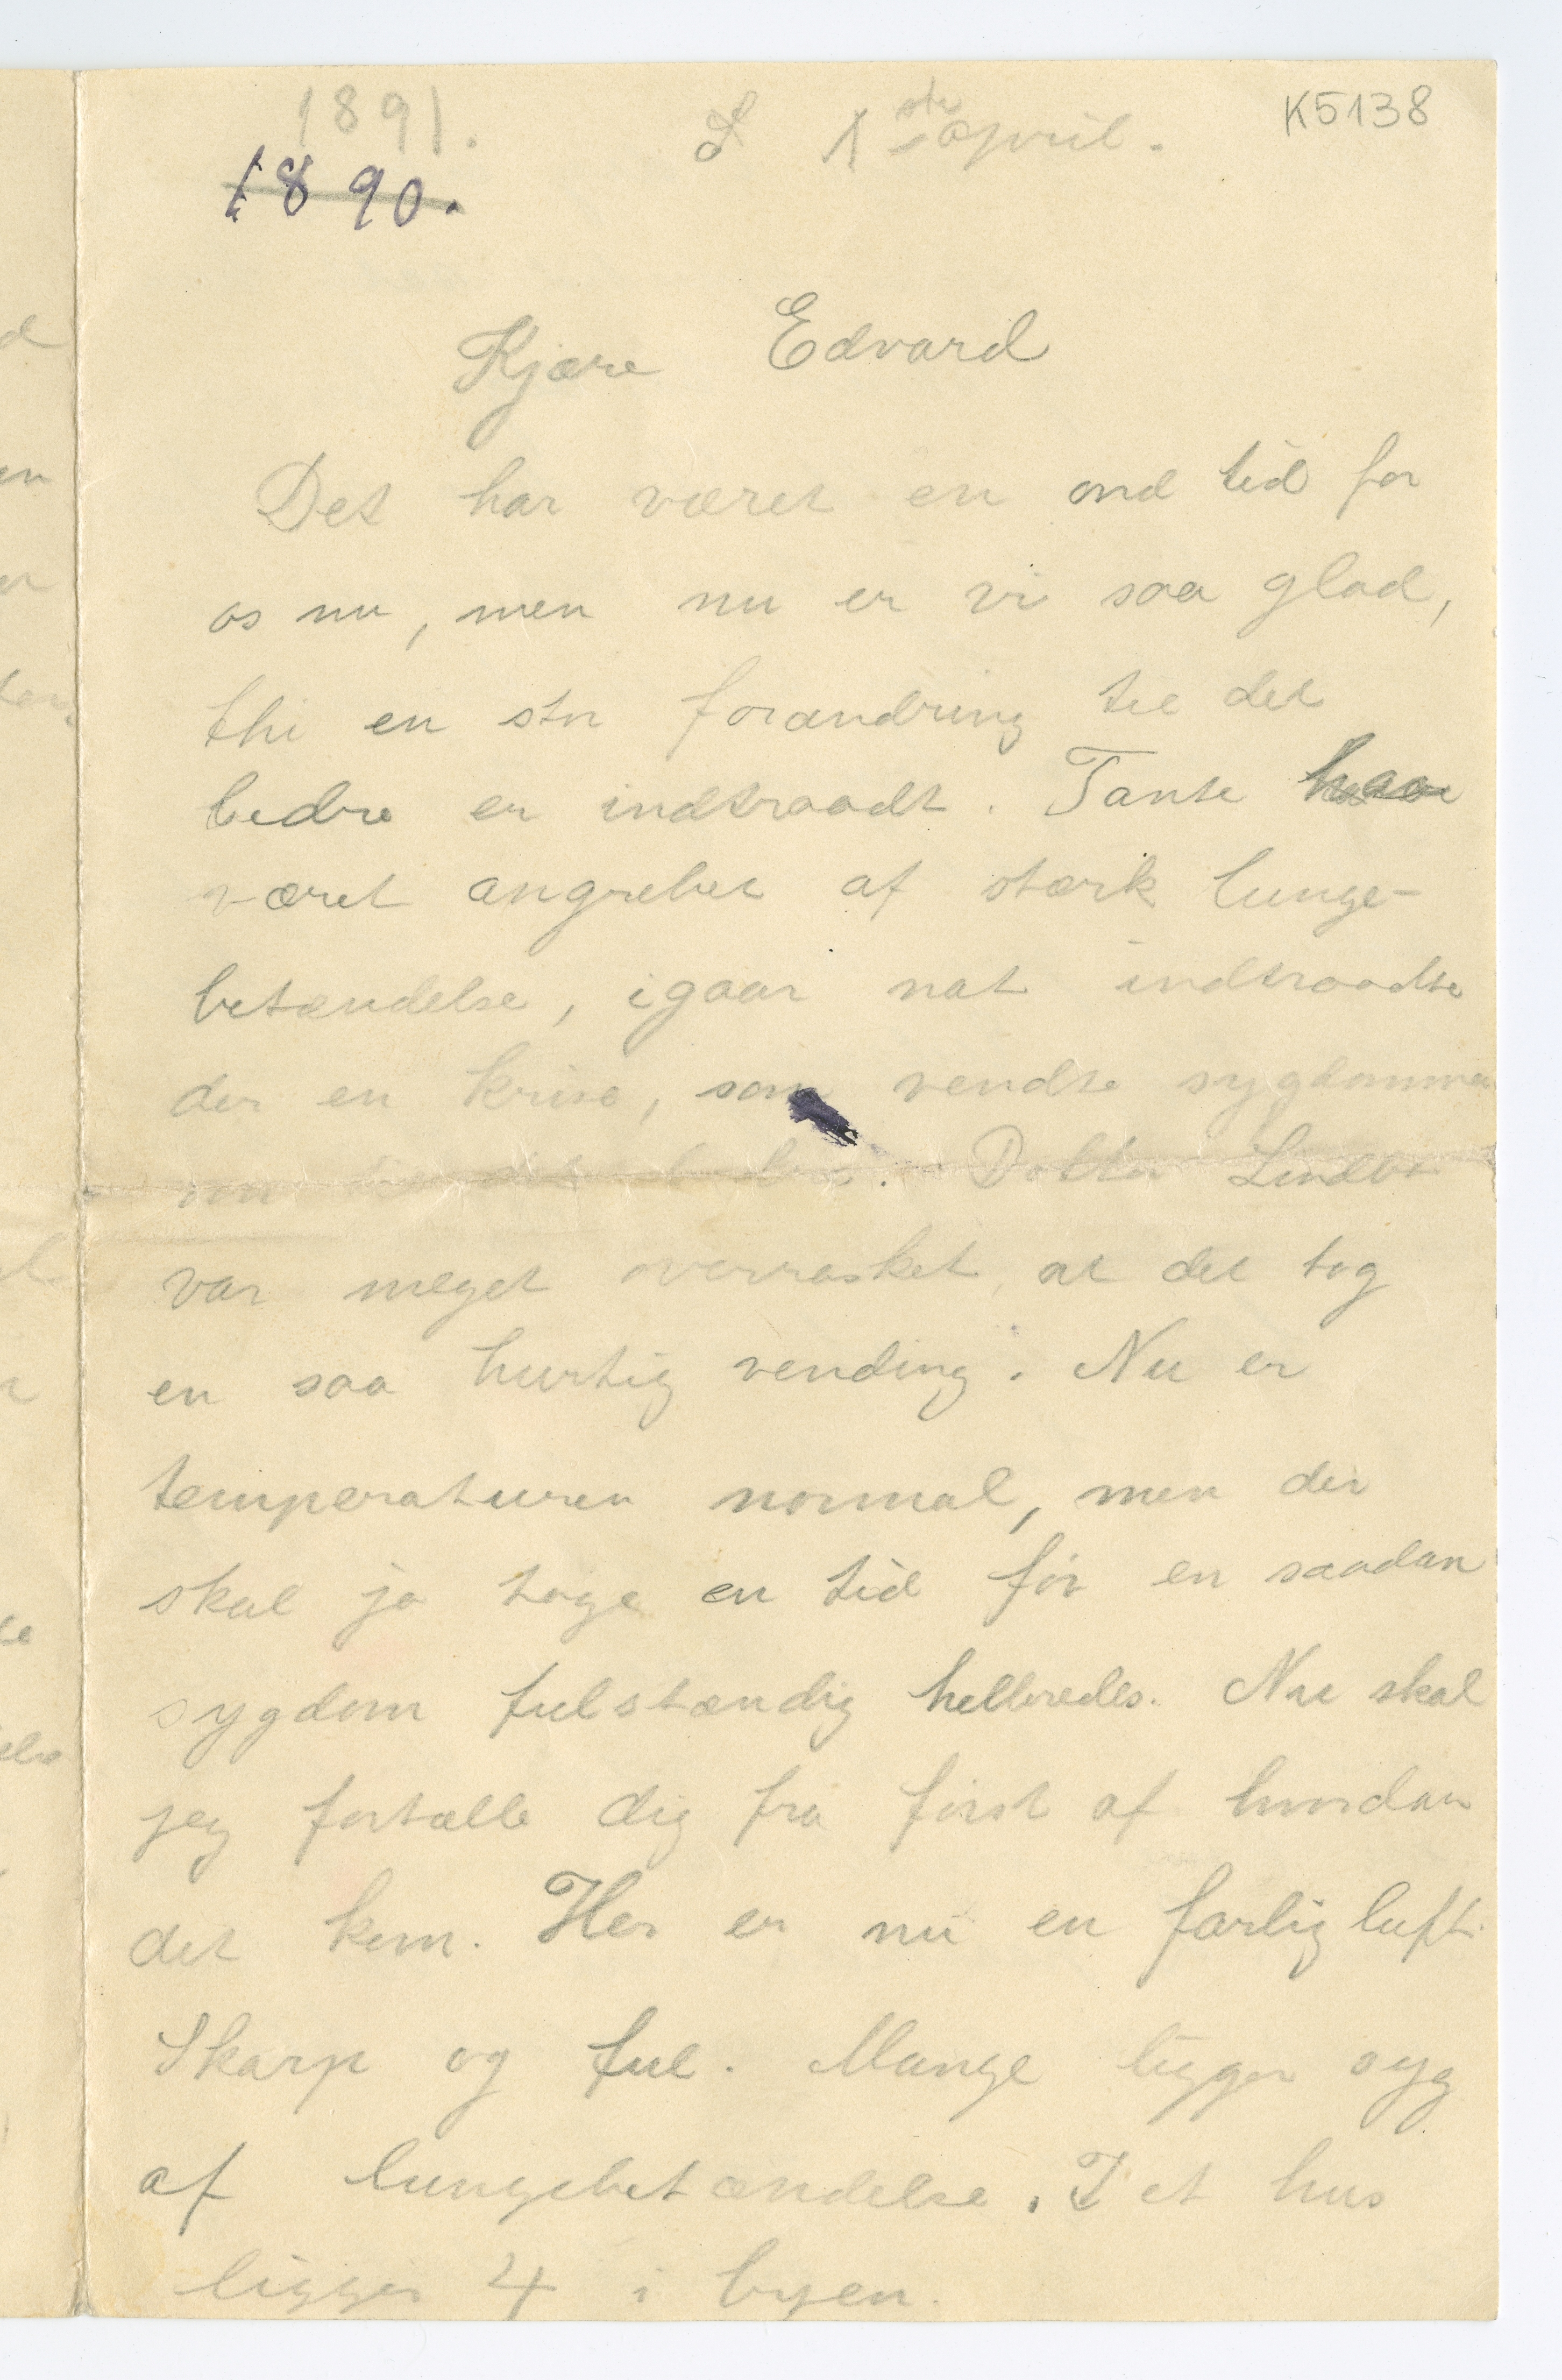 K5138
1891.
d 1ste april.
1890.
Kjære Edvard
Det har været en ond tid for
os nu, men nu er vi saa glad,
thi en stor forandring til det
bedre er indtraadt. Tante har
været angrebet af stærk lunge-
betændelse, igaar nat indtraadte
der en krise, som vendte sygdommen
om Dokter Lindbo
var meget overrasket, at det tog
en saa hurtig vending. Nu er
temperaturen normal, men der
skal ja tage en tid før en saadan
sygdom fulstændig helbredes. Nu skal
jeg fortælle dig fra først af hvordan
det kom. Her er nu en farlig luft.
Skarp og ful. Mange ligger syg
af lungebetændelse. I et hus
ligger 4 i byen.